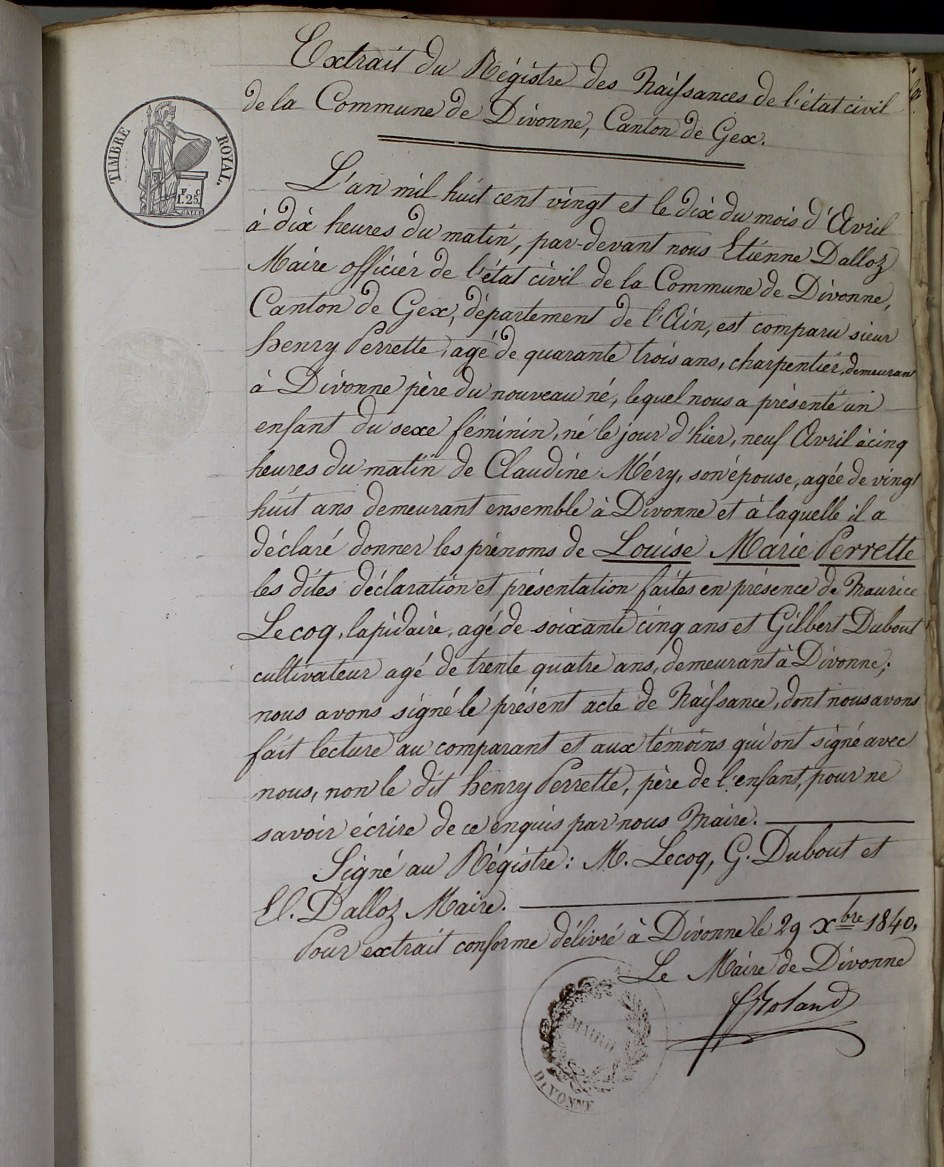 Extrait du Régistre des Naissances de l'état civil
de la Commune de Divonne, Canton de Gex.
TIMBRE ROYAL.
F. C.
1.25
L'an mil huit cent vingt et le dix du mois d'Avril
à dix heures du matin, par-devant nous Etienne Dalloz
Maire officiér de l'état civil de la Commune de Divonne,
Canton de Gex, département de l'Ain, est comparu sieur
henry Perrette, agé de quarante trois ans, charpentiér, demeurant
à Divonne père du nouveau né, lequel nous a présenté un
enfant du sexe féminin, né le jour d'hier, neuf Avril à cinq
heures du matin de Claudine Méry, son épouse, agée de vingt
huit ans demeurant ensemble à Divonne et à laquelle il a
déclaré donner les prénoms de Louise Marie Perrette
les dites déclaration et présentation faites en présence de Maurice
Lecoq, lapidaire, agé de soixante cinq ans et Gilbert Dubout
cultivateur agé de trente quatre ans, demeurant à Divonne;
nous avons signé le présent acte de Naissance, dont nous avons
fait lecture au comparant et aux témoins qui ont signé avec
nous, non le dit henry Perrette, père de l'enfant, pour ne
savoir écrire de ce enquis par nous Maire.
Signé au Régistre: M. Lecoq, G. Dubout et
Et. Dalloz Maire.
Pour extrait conforme délivré à Divonne le 29 Xbre 1840,
Le Maire de Divonne
Roland
MAIRIE
DIVONNE